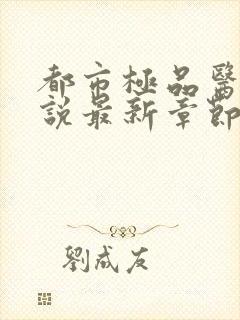 都市極品醫
說最新章節
劉成友